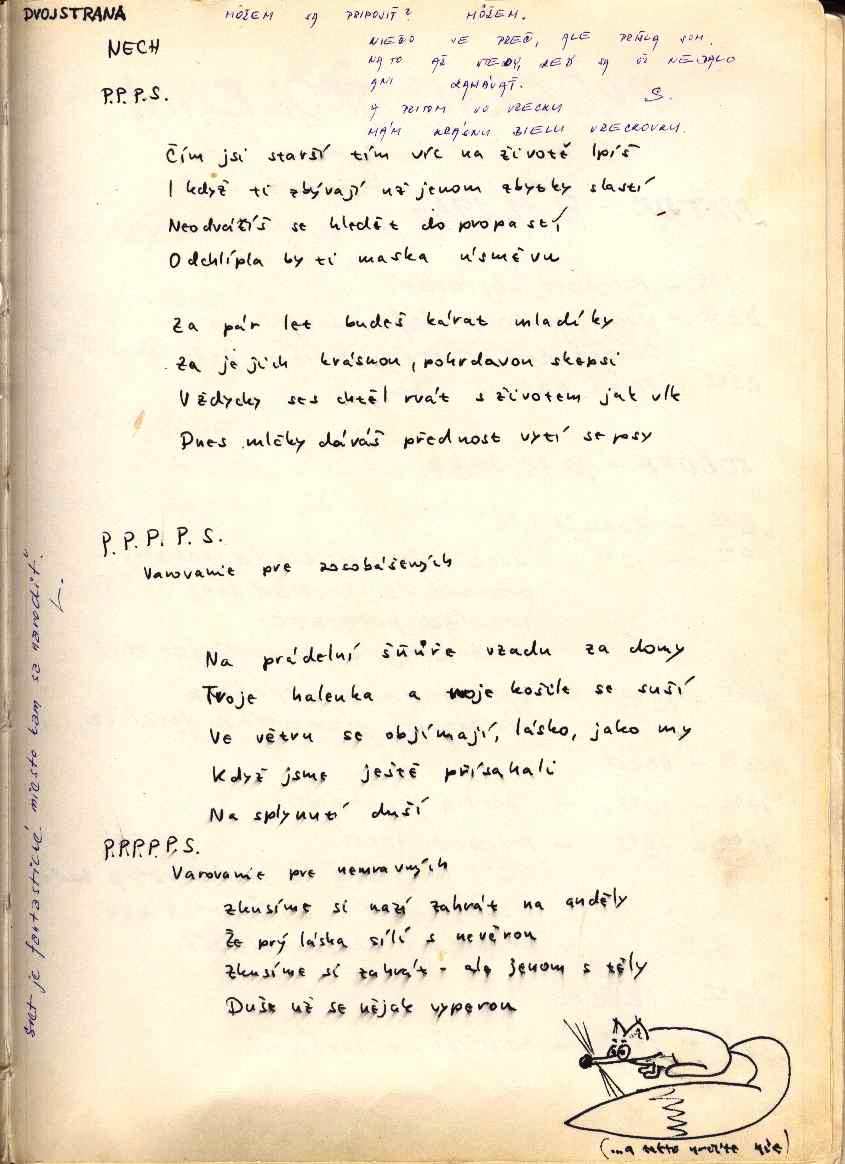 DVOJSTRANA
NECH
MÔŽEM SA PRIPOJIŤ? MÔŽEM.
NIEČO VE PREČ, ALE PRIŠLA SOM
NA TO AŽ VTEDY, KEĎ SA UŽ NEDALO
ANI
A PRITOM VO VRECKU S.
MÁM KRÁSNU BIELU VRECKOVKU.
P.P.P.S.
Čím jsi starší tím víc na životě lpíš
I když ti zbývají už jenom zbytky slastí
Neodvážíš se hledět do propastí
Odchlípla by ti maska úsměvu
Za pár let budeš kárat mladíky
Za jejich krásnou, pohrdavou skepsi
Vždycky ses chtěl rvát s životem jak vlk
Dnes mlčky dáváš přednost vytí se psy
P.P.P.P.S.
Varovanie pre zosobášených
Na prádelní šňůře vzadu za domy
Tvoje halenka a moje košile se suší
Ve větru se objímají, lásko, jako my
Když jsme ještě přísahali
Na splynutí duší
P.P.P.P.P.S.
Varovanie pre nemravných
Zkusíme si nazí zahrát na anděly
Že prý láska sílí s nevěrou
Zkusíme si zahrát - ale jenom s těly
Duše už se nějak vyperou
(...a takto určite nie)
Svet je fantastické miesto kam sa narodiť.
L.